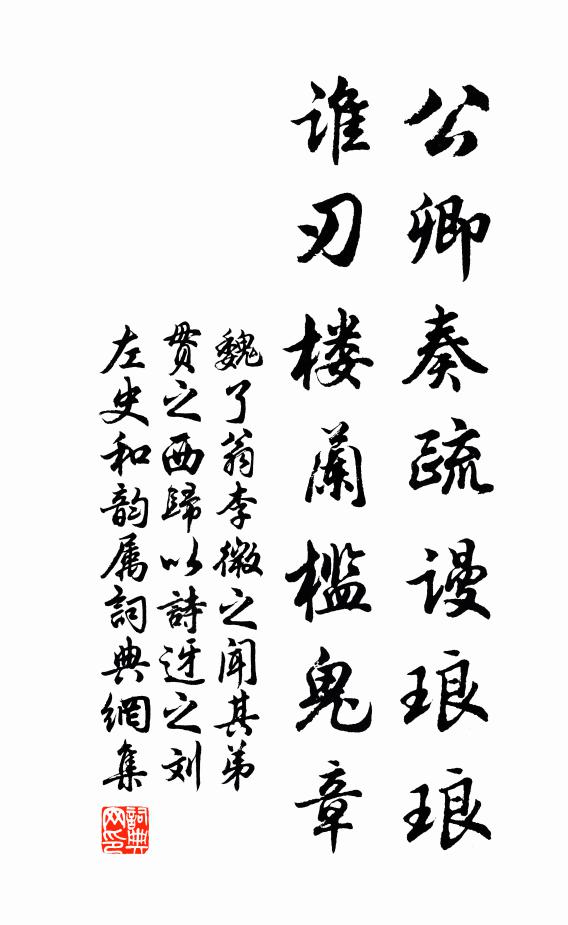 公卿奏疏谩琅琅
谁刃楼蘭槛鬼章
魏了翁李微之闻其弟
贯之西歸以詩迓之刘
左史和韵属詞典網集
詞典网印